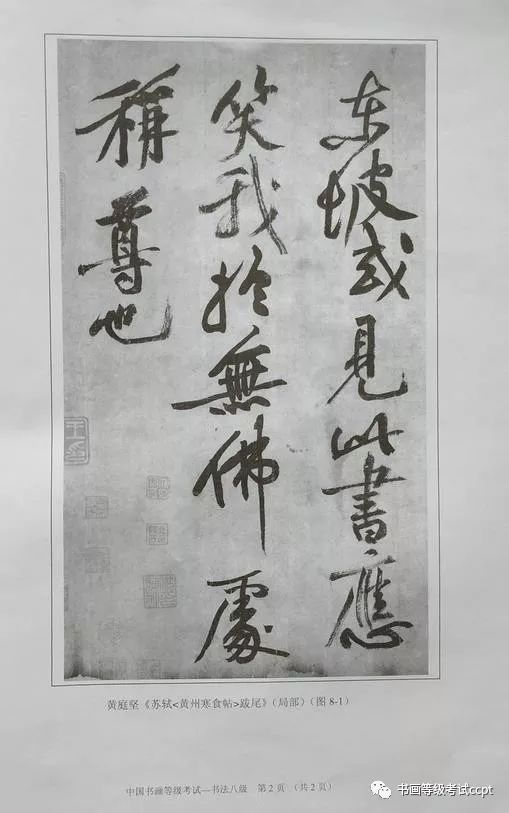 东坡或見此書應
笑我於無佛處
稱尊也
黄庭坚《苏轼<黄州寒食帖>跋尾》(局部)(图8-1)
中国书画等级考试—书法八级 第2页 (共2页)
书画等级考试ccpt